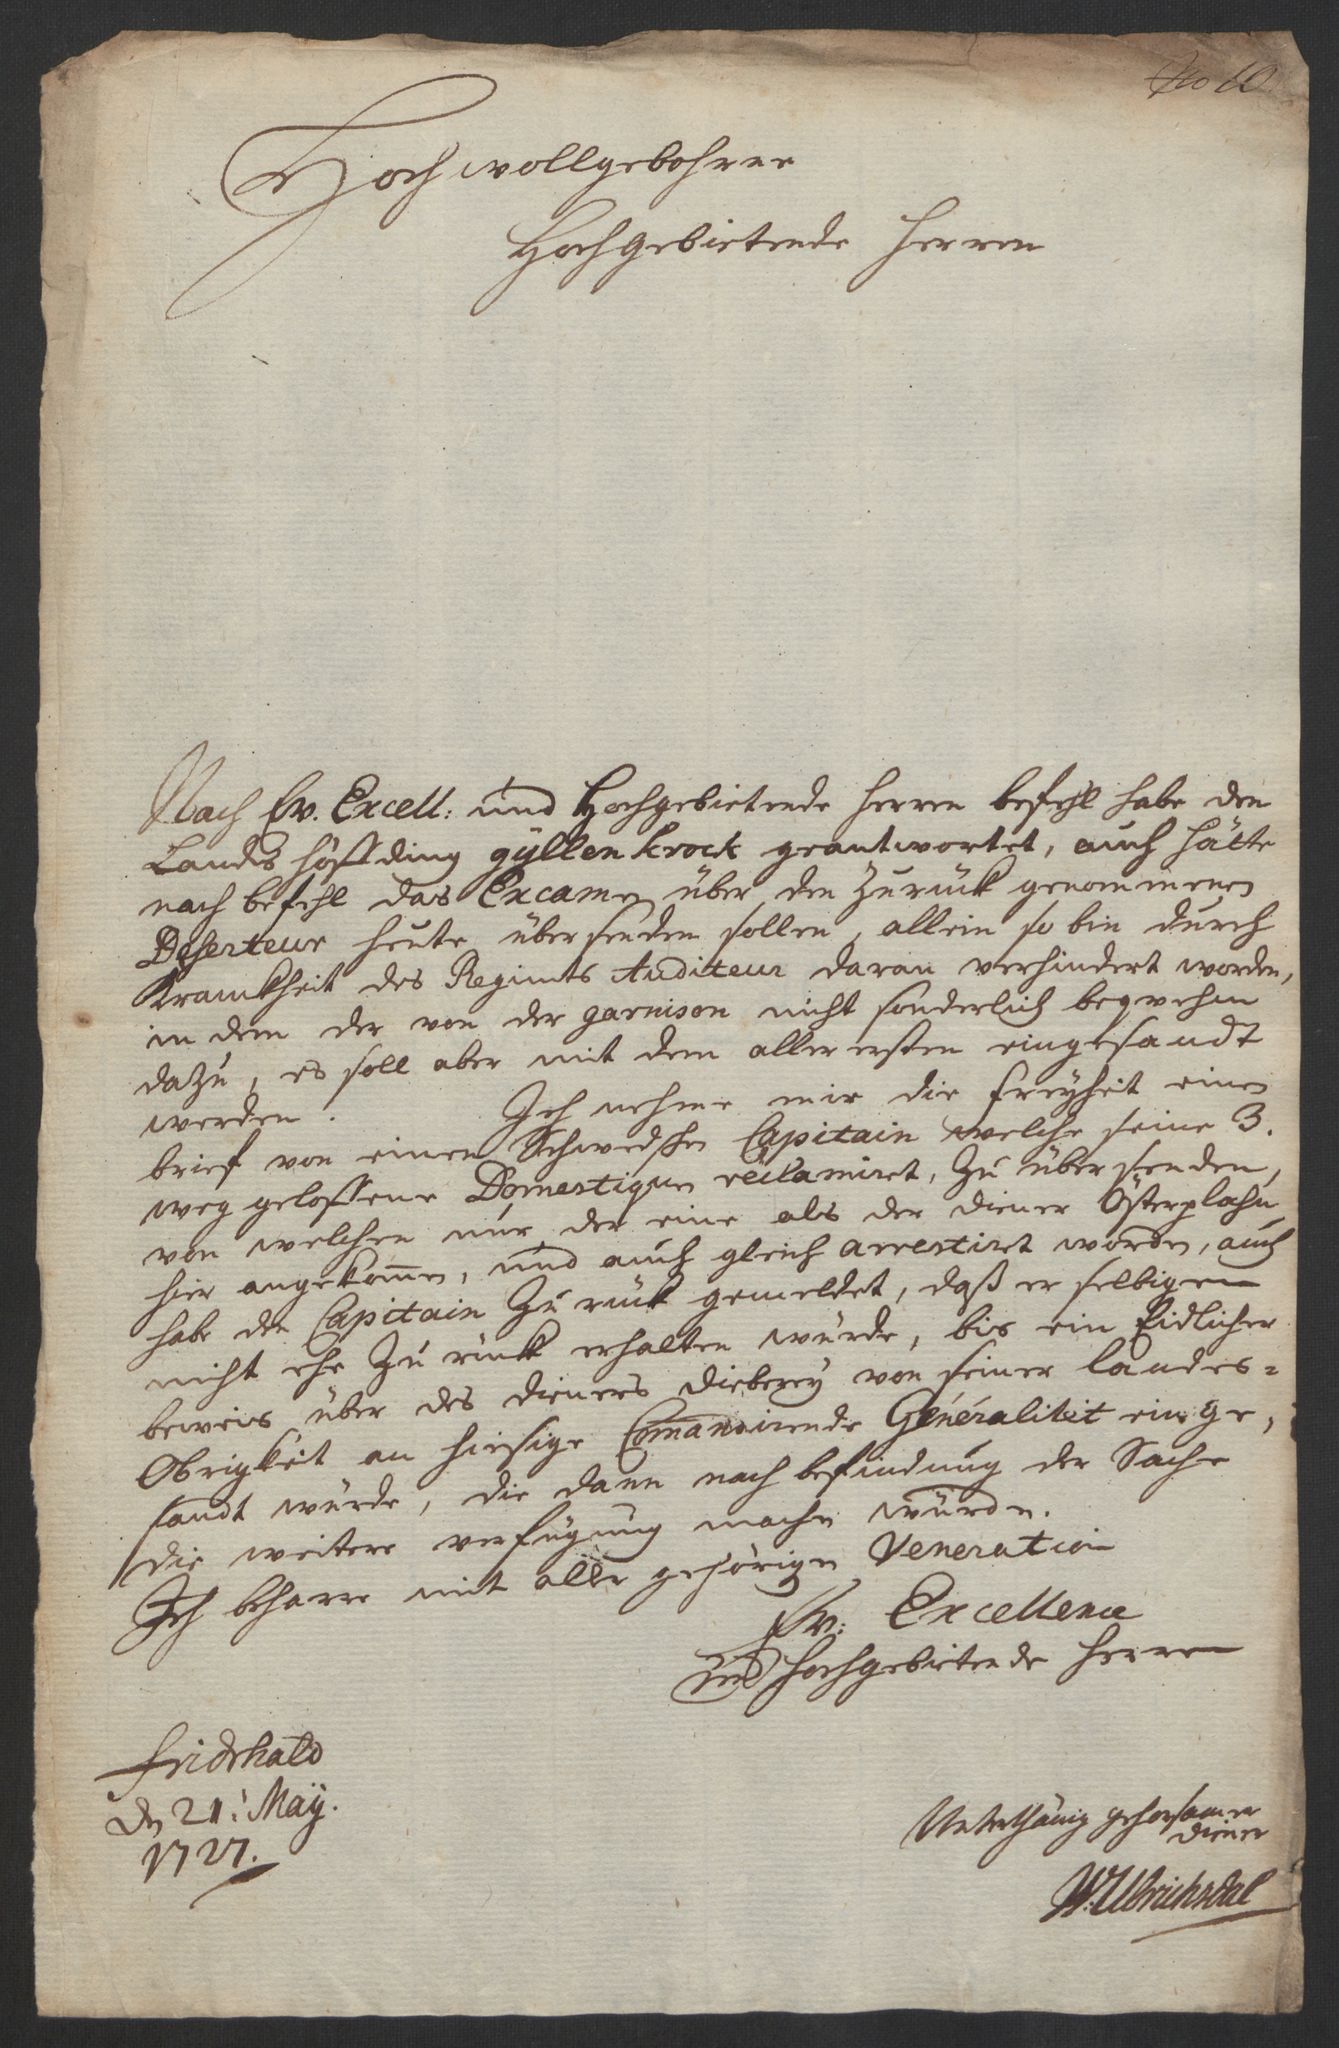 No 60
Hoch wollgebohrne
Hochgebietende Herren
Nach Ew. Excell: und Hochgebietende Herren befehl habe den
Lands höffding gÿllenkrock geantwortet, auch hätte
nach befehl das Excamen über den Zurück genommenen
Deserteur heute übersenden sollen, allein so bin durch
Kranckheit des Regimts Auditeur daran verhindert worden,
in dem der von der garnison nicht sonderlich beqvehm
dazu, es soll aber mit dem aller ersten eingesandt
werden. Ich nehme mir die freyheit einen
brief von einen Schwedschen Capitain welche seine 3.
weg geloffene Domestiquen reclamiret, Zu über senden,
von welchen nur der eine als der diener Österplahn
hier angekommen, und auch gleich arrestiret worden, auch
habe der Capitain Zu rück gemeldet, daß er selbigen
nicht ehe Zu rück erhalten würde, bis ein Eidlicher
beweis über des dieners dieberey von seiner landes=
Obrigkeit an hiesige Comandirende Generalitet einge,
sandt würde, die dann nach befindung der Sache
die weitere verfügung machen würde.
Ich beharre mit aller gehörigen Veneration
Ew: Excellence
und hochgebietende Herren
Fridrhald
den 21: Maÿ.
1727.
Unterthänig gehorsamer
diener
W. Ulrichsdal